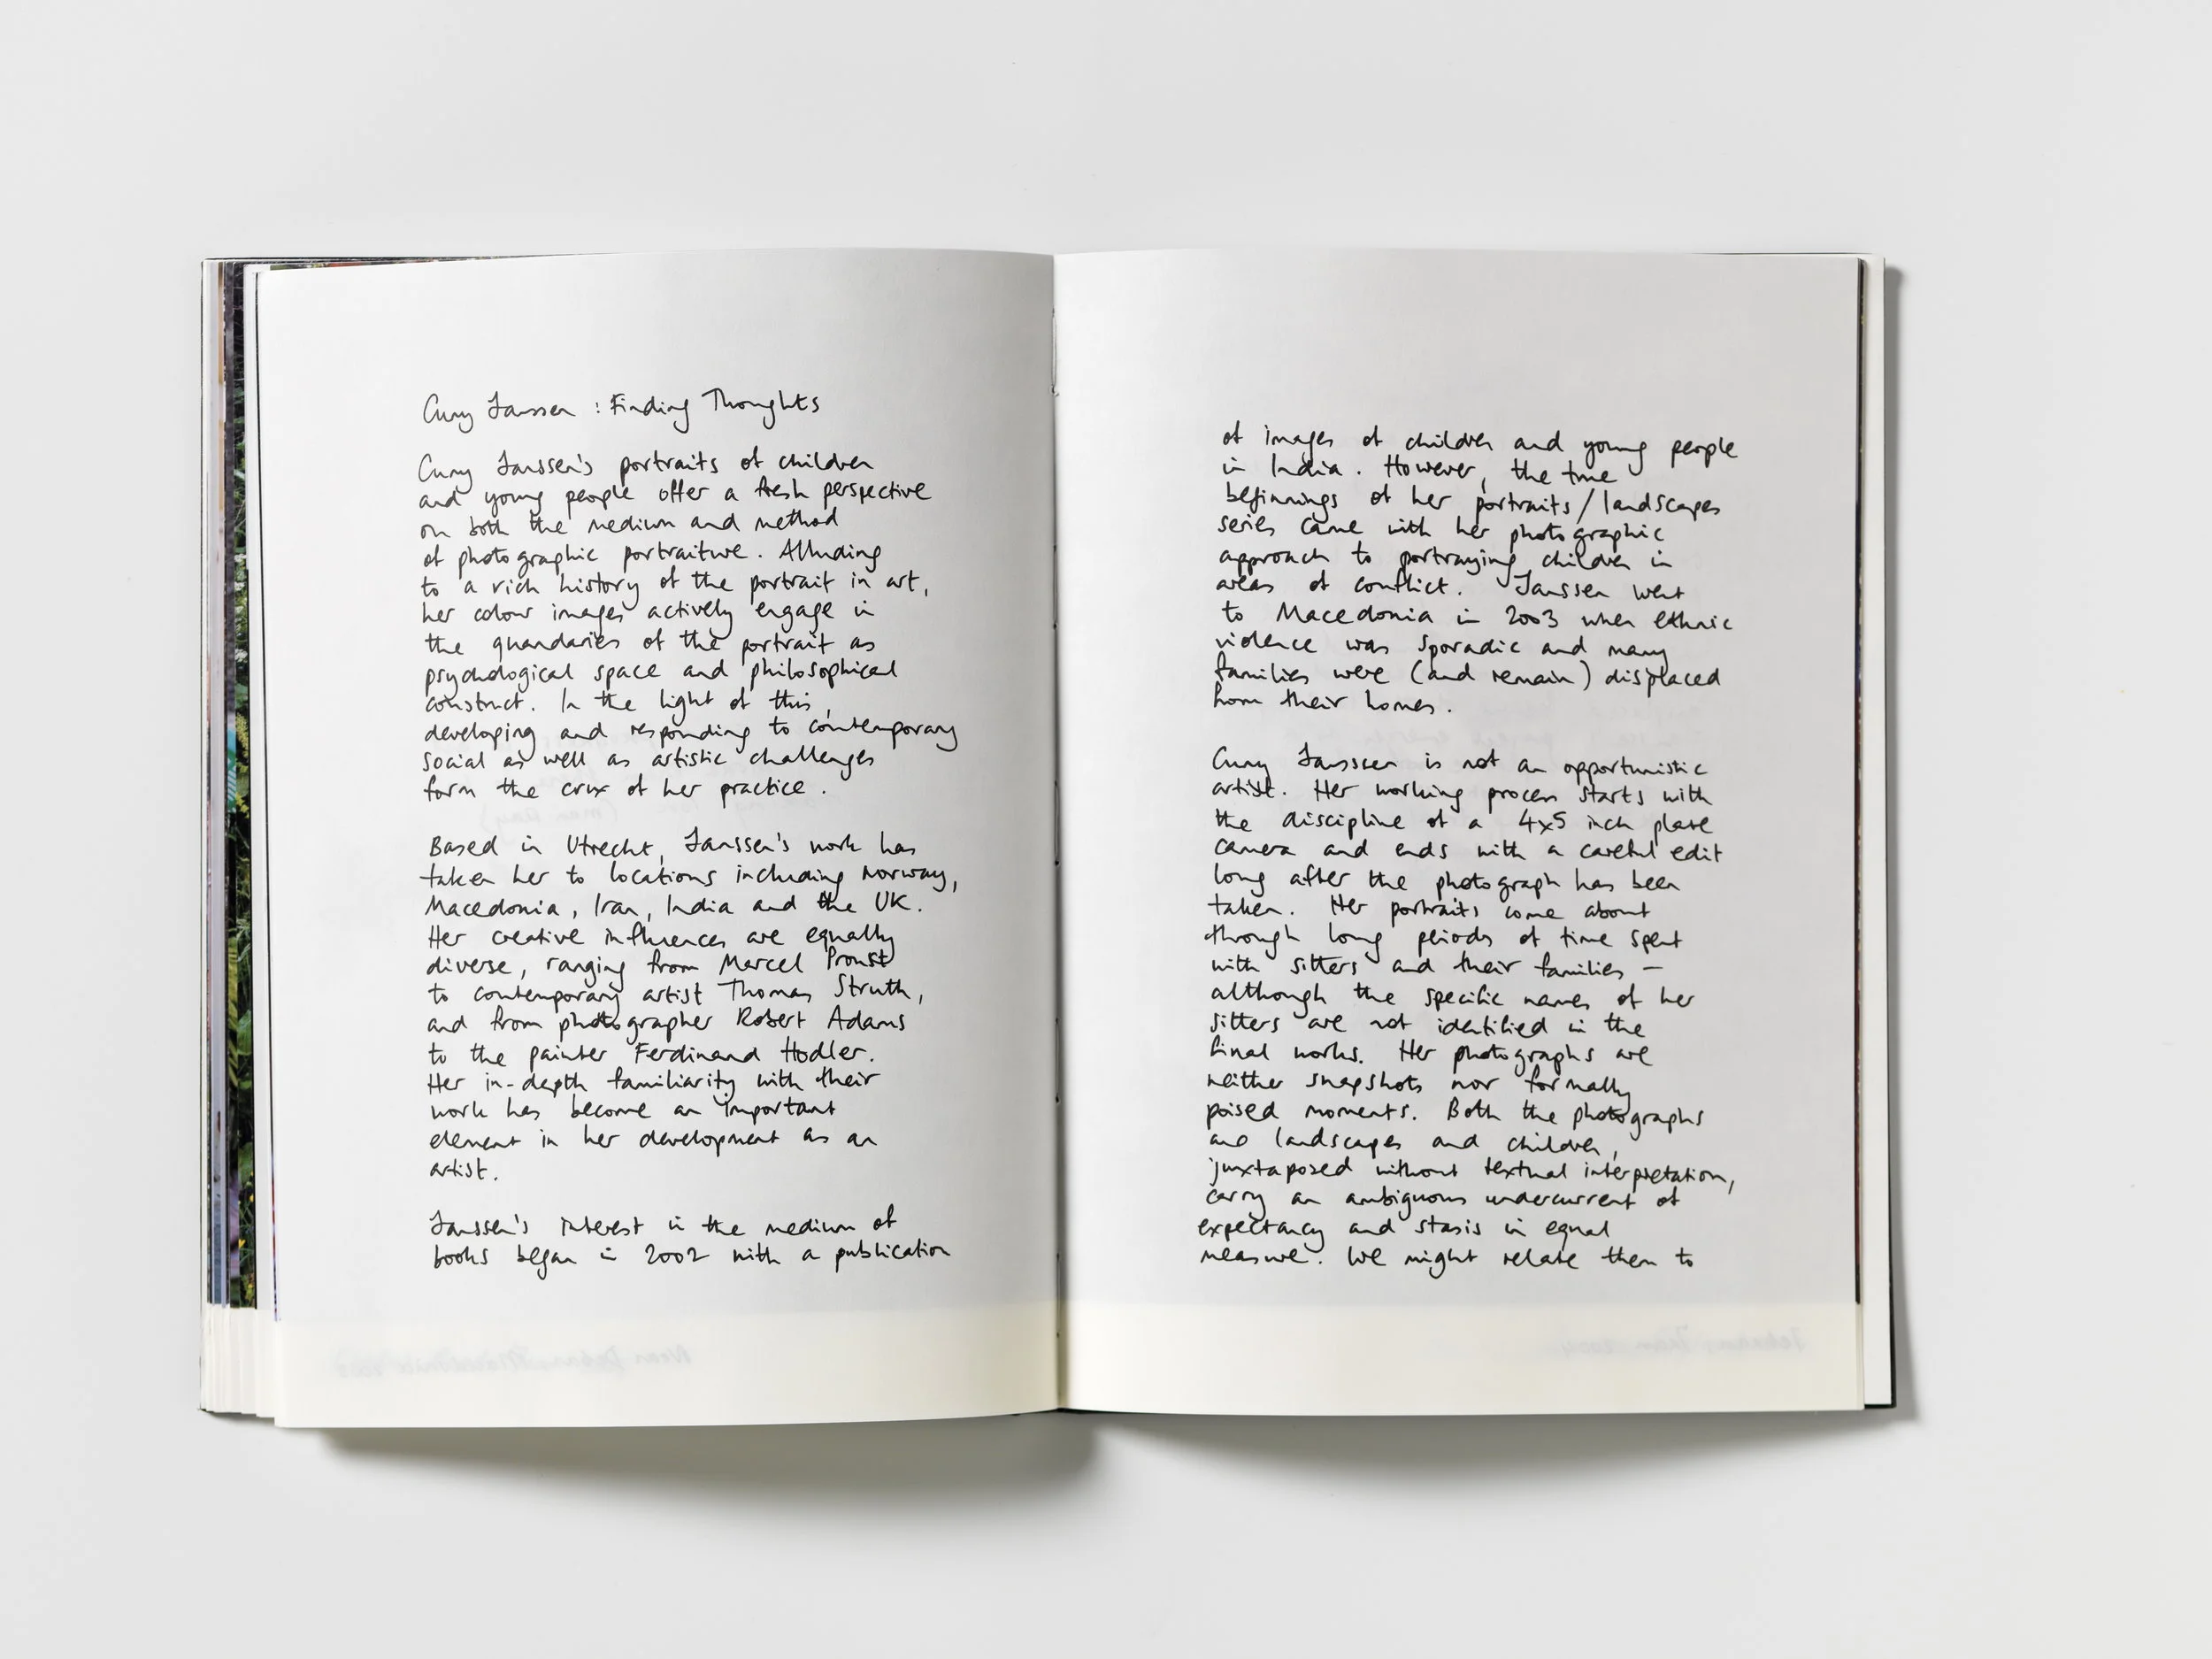 Cuny Janssen : Finding Thoughts
Cuny Janssen's portraits of children
and young people offer a fresh perspective
on both the medium and method
of photographic portraiture. Alluding
to a rich history of the portrait in art,
her colour images actively engage in
the quandaries of the portrait as
psychological space and philosophical
construct. In the light of this,
developing and responding to contemporary
social as well as artistic challenges
form the crux of her practice.
Based in Utrecht, Janssen's work has
taken her to locations including Norway,
Macedonia, Iran, India and the UK.
Her creative influences are equally
diverse, ranging from Marcel Proust
to contemporary artist Thomas Struth,
and from photographer Robert Adams
to the painter Ferdinand Hodler.
Her in-depth familiarity with their
work has become an important
element in her development as an
artist.
Janssen's interest in the medium of
books began in 2002 with a publication
of images of children and young people
in India. However, the true
beginnings of her portraits/landscapes
series came with her photographic
approach to portraying children in
areas of conflict. Janssen went
to Macedonia in 2003 when ethnic
violence was sporadic and many
families were (and remain) displaced
from their homes.
Cuny Janssen is not an opportunistic
artist. Her working process starts with
the discipline of a 4x5 inch plate
camera and ends with a careful edit
long after the photograph has been
taken. Her portraits come about
through long periods of time spent
with sitters and their families —
although the specific names of her
sitters are not identified in the
final works. Her photographs are
neither snapshots nor formally
poised moments. Both the photographs
and landscapes and children,
juxtaposed without textual interpretation,
carry an ambiguous undercurrent of
expectancy and stasis in equal
measure. We might relate them to